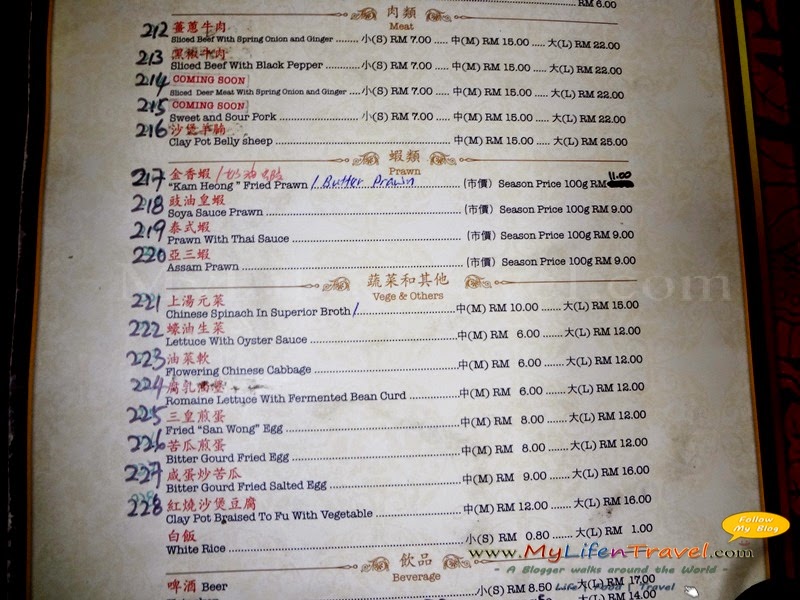 RM 6.00
肉類
Meat
212 薑蔥牛肉
Sliced Beef With Spring Onion and Ginger ........ 小(S) RM 7.00 ..... 中(M) RM 15.00 ..... 大(L) RM 22.00
213 黑椒牛肉
Sliced Beef With Black Pepper ............ 小(S) RM 7.00 ..... 中(M) RM 15.00 ..... 大(L) RM 22.00
214 COMING SOON
Sliced Deer Meat With Spring Onion and Ginger ..... 小(S) RM 7.00 ..... 中(M) RM 15.00 ..... 大(L) RM 22.00
215 COMING SOON
Sweet and Sour Pork ........................ 小(S) RM 7.00 ..... 中(M) RM 15.00 ..... 大(L) RM 22.00
216 沙煲羊腩
Clay Pot Belly sheep ........................ 中(M) RM 15.00 ..... 大(L) RM 25.00
蝦類
Prawn
217 金香蝦 / 奶油蝦
"Kam Heong" Fried Prawn / Butter Prawn ............ (市價) Season Price 100g RM 11.00
218 豉油皇蝦
Soya Sauce Prawn ........................ (市價) Season Price 100g RM 9.00
219 泰式蝦
Prawn With Thai Sauce ........................ (市價) Season Price 100g RM 9.00
220 亞三蝦
Assam Prawn ........................ (市價) Season Price 100g RM 9.00
蔬菜和其他
Vege & Others
221 上湯元菜
Chinese Spinach In Superior Broth / ............ 中(M) RM 10.00 ...... 大(L) RM 15.00
222 蠔油生菜
Lettuce With Oyster Sauce ........................ 中(M) RM 6.00 ...... 大(L) RM 12.00
223 油菜軟
Flowering Chinese Cabbage ........................ 中(M) RM 6.00 ...... 大(L) RM 12.00
224 腐乳
Romaine Lettuce With Fermented Bean Curd ............ 中(M) RM 6.00 ...... 大(L) RM 12.00
225 三皇煎蛋
Fried "San Wong" Egg ........................ 中(M) RM 8.00 ...... 大(L) RM 12.00
226 苦瓜煎蛋
Bitter Gourd Fried Egg ........................ 中(M) RM 8.00 ...... 大(L) RM 12.00
227 咸蛋炒苦瓜
Bitter Gourd Fried Salted Egg ........................ 中(M) RM 9.00 ...... 大(L) RM 16.00
228 紅燒沙煲豆腐
Clay Pot Braised To Fu With Vegetable ............ 中(M) RM 12.00 ...... 大(L) RM 16.00
白飯
White Rice ........................ 小(S) RM 0.80 ...... 大(L) RM 1.00
飲品
Beverage
啤酒 Beer ........................ 小(S) RM 8.50 ..... 大(L) RM 17.00
大(L) RM 14.00
Follow My Blog
www.MyLifenTravel.com
- A Blogger walks around the World -
Life | Food | Travel